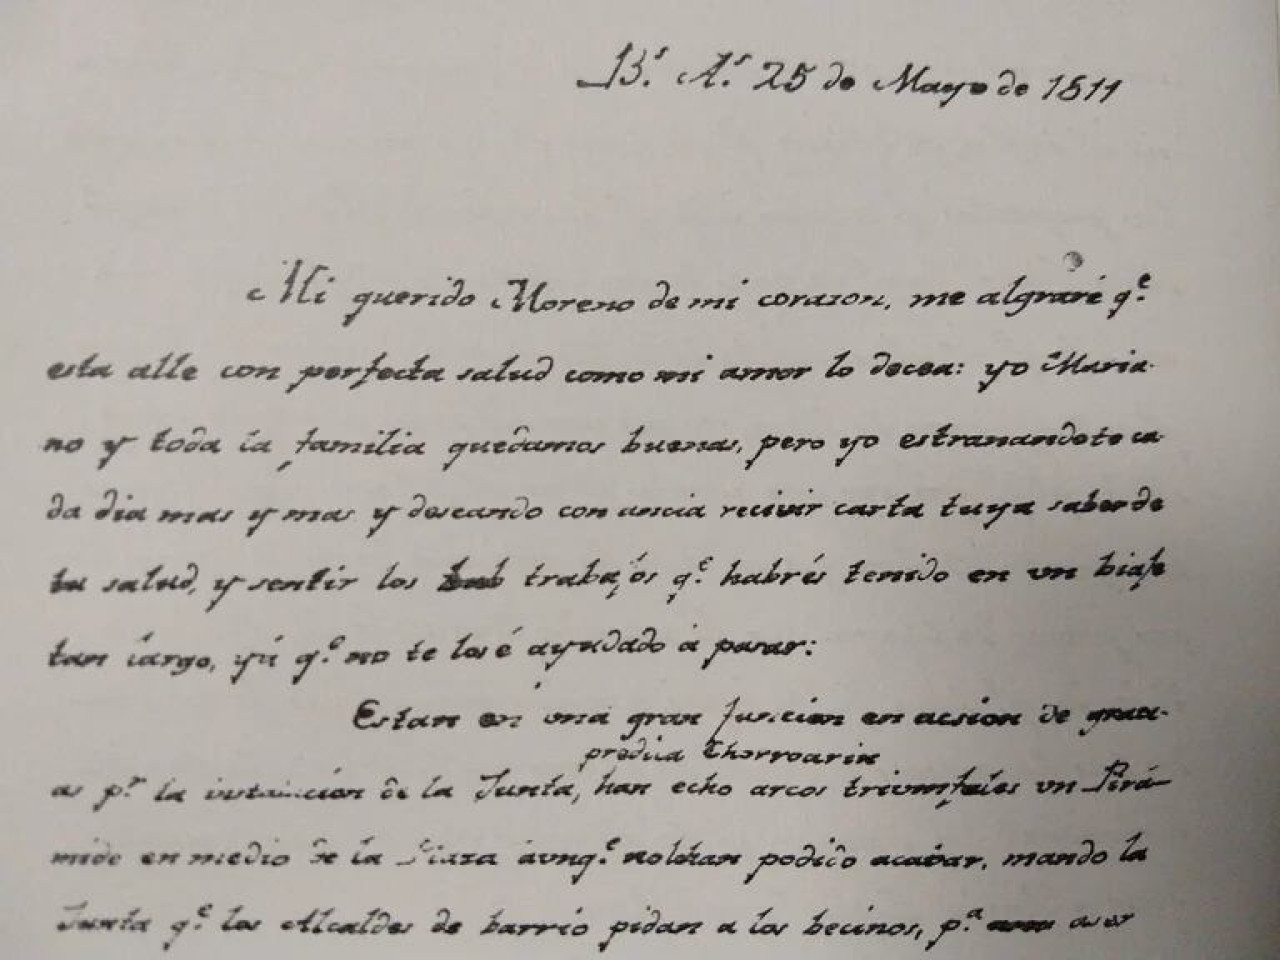 B.ˢ A.ˢ 25 de Mayo de 1811
Mi querido Moreno de mi corazon, me algraré q.ᵉ
esta alle con perfecta salud como mi amor lo decea: yo Maria-
no y toda la familia quedamos buenos, pero yo estranandote ca-
da dia mas y mas y deseando con ancia recivir carta tuya saber de
tu salud, y sentir los trabajos q.ᵉ habrés tenido en un biaje
tan largo, yá q.ᵉ no te los é ayudado á pasar:
Estan en una gran funcion en acsion de graci-
predica Chorroarin
as p.ʳ la instalacion de la Junta, han echo arcos triumfales un Pirá-
mide en medio de la Plaza áunq.ᵉ no lohan podido acavar, mando la
Junta q.ᵉ los Alcaldes de barrio pidan a los becinos, p.ᵃ aser